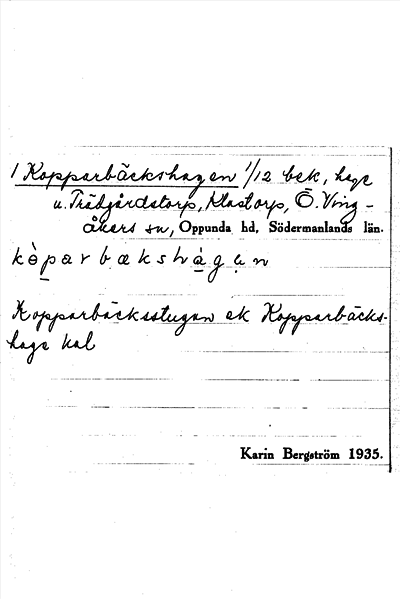 1 Kopparbäckshagen 1/12 bek, hage
u. Trädgårdstorp, Klastorp, Ö. Ving-
åkers sn, Oppunda hd, Södermanlands län.
kò̱parbækshàgạn
Kopparbäcksstugan ek Kopparbäcks-
hage kal
Karin Bergström 1935.